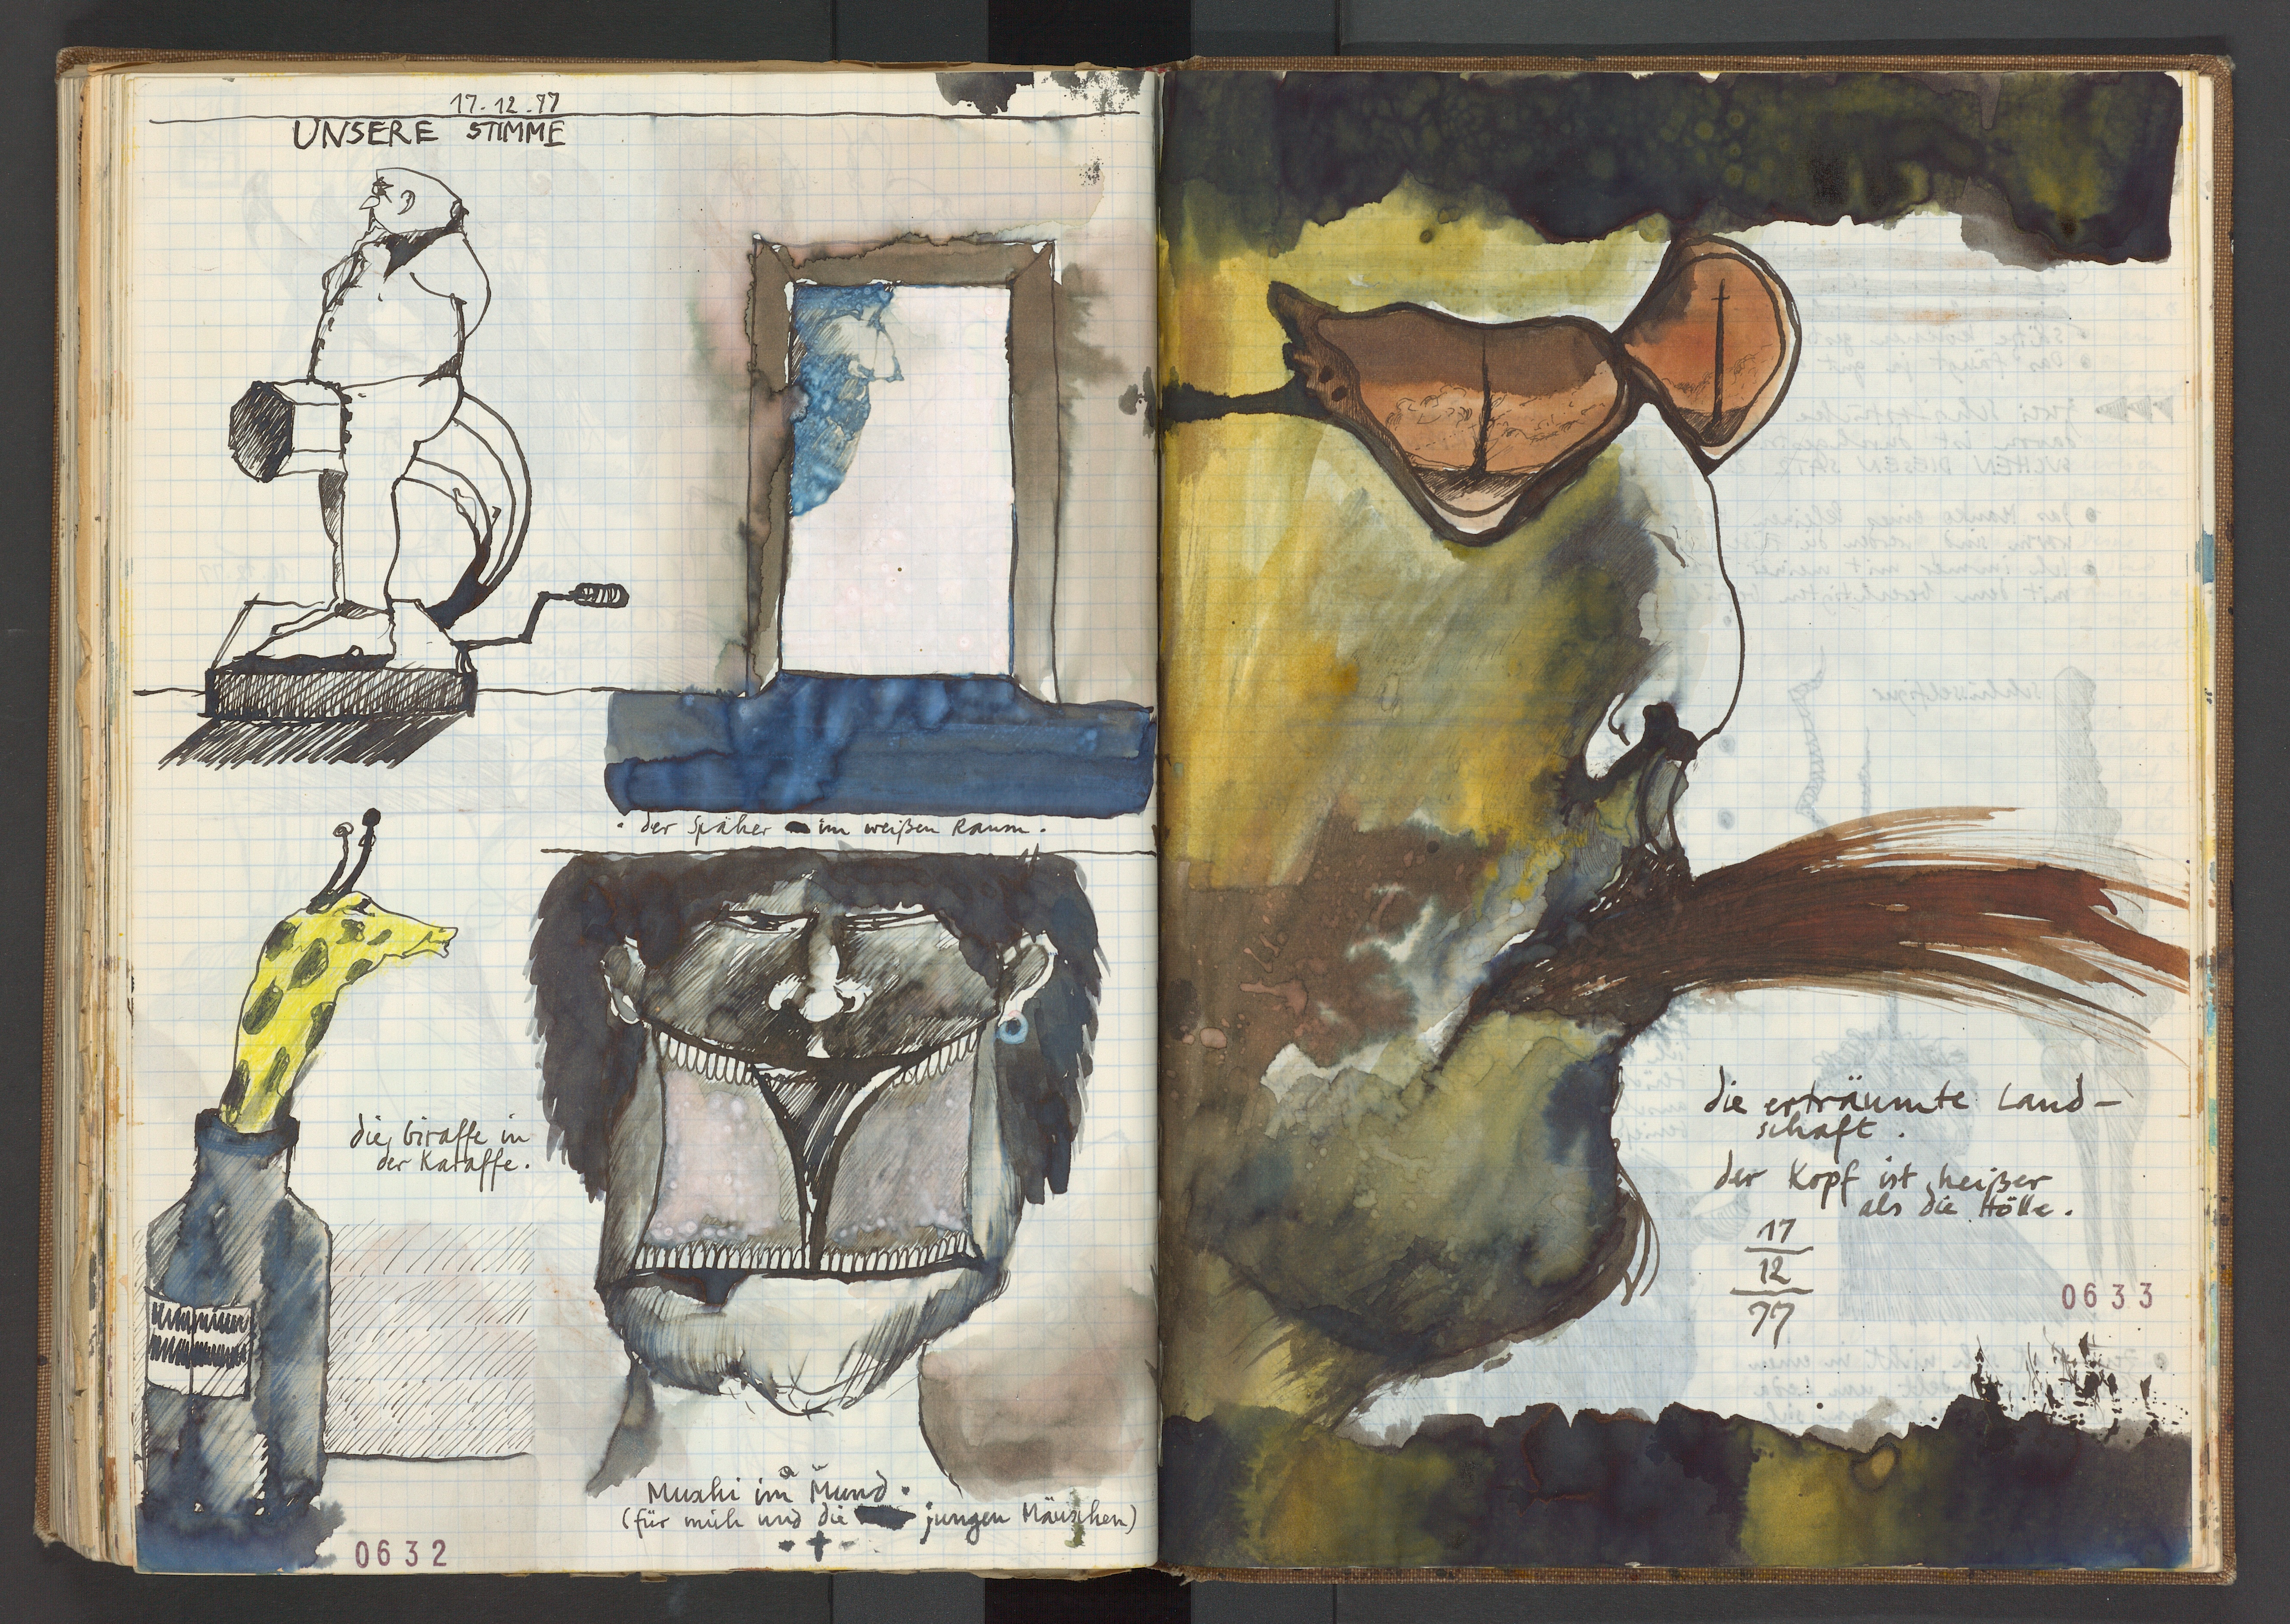 17.12.77
UNSERE STIMME
. der Späher im weißen Raum.
die Giraffe in
der Karaffe.
Muschi im Mund.
(für mich und die jungen Mäuschen)
0632
die erträumte Land-
schaft.
der Kopf ist heißer
als die Hölle.
17
12
77
0633